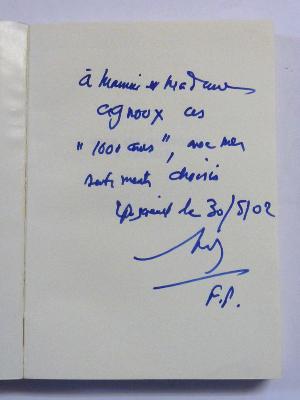 à Monsieur et Madame
Cognoux ces
"1000 ans", avec mes
sentiments choisis
le 30/5/02
F.P.